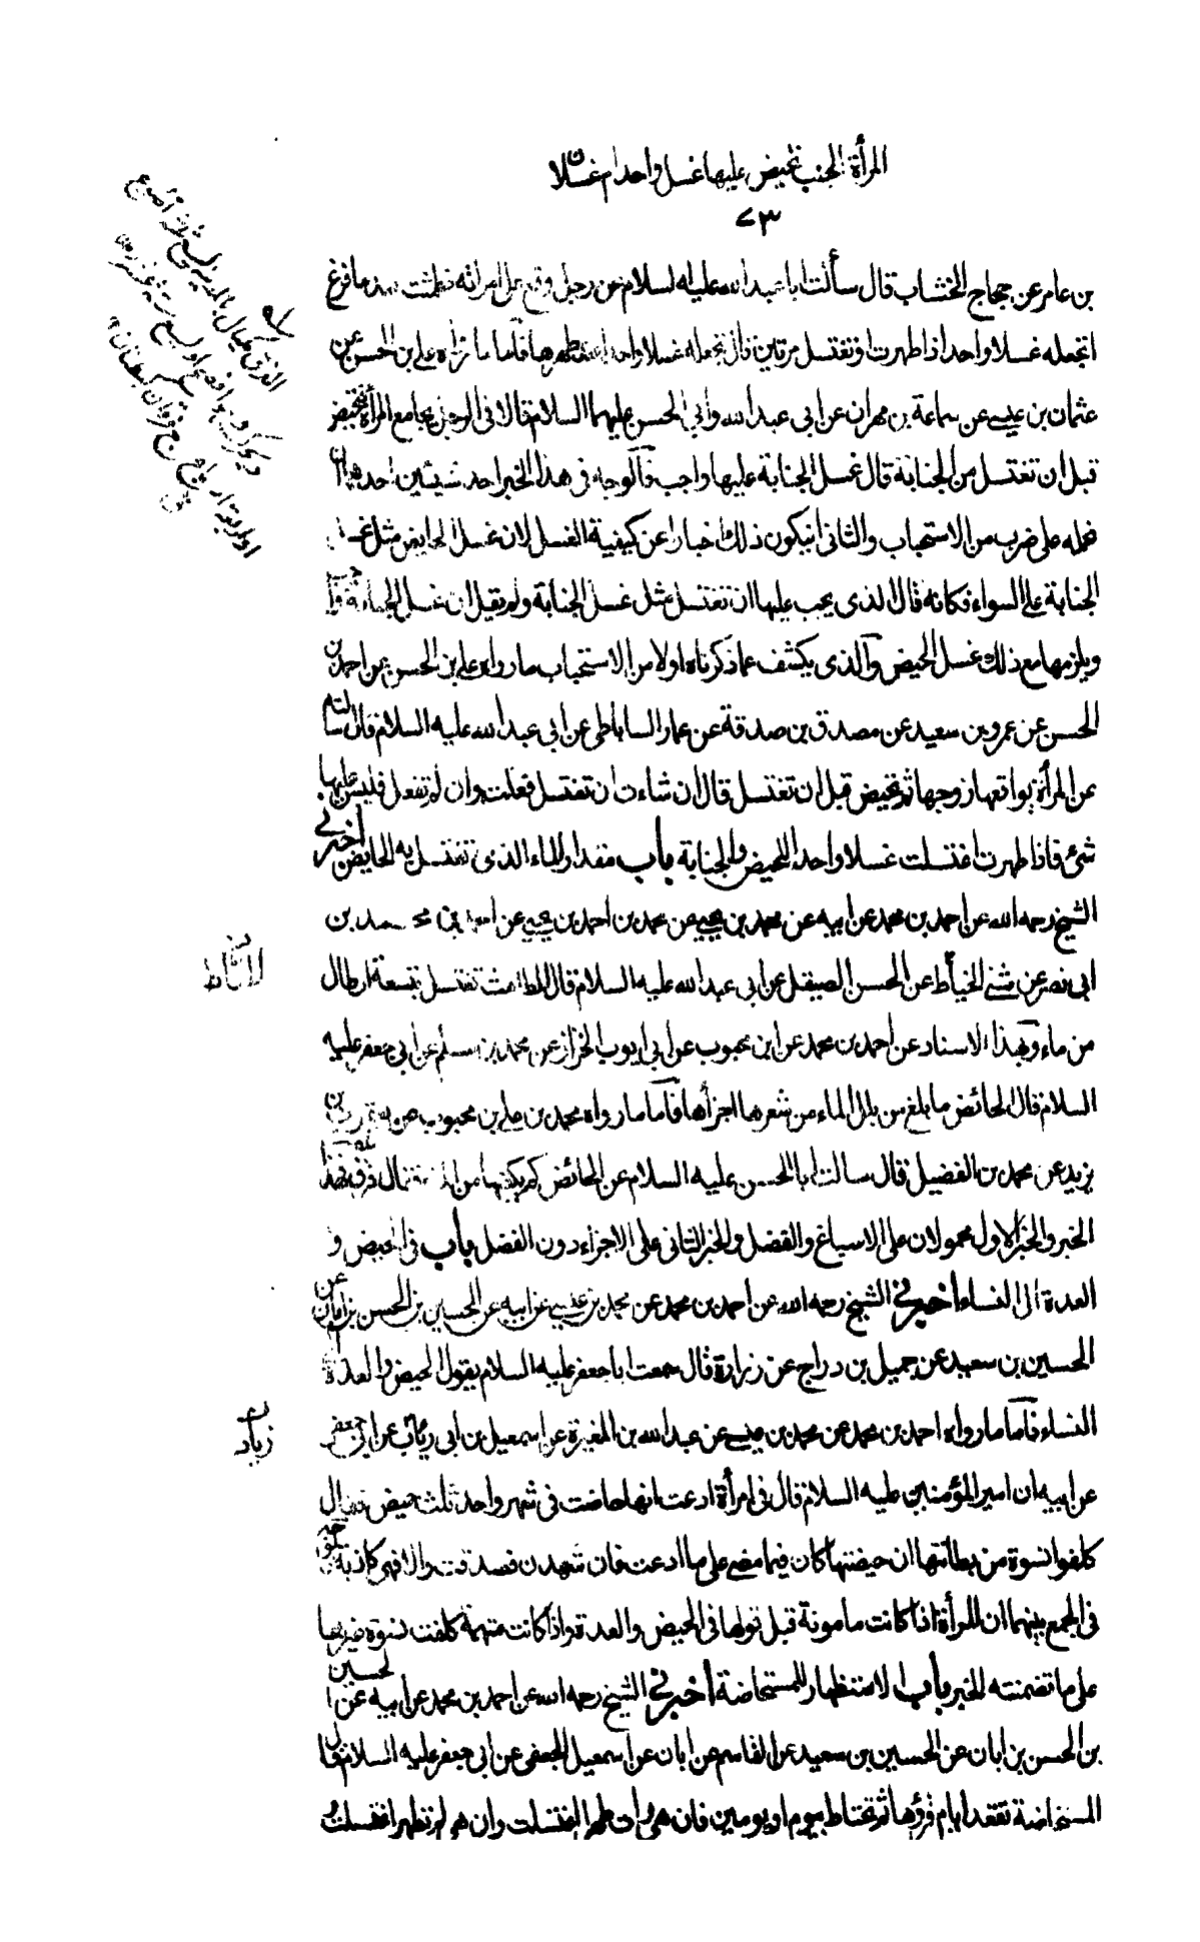 المرأة الجنب تحيض عليها غسل واحد ام غسلان
٧٣
بن عامر عن حجاج الخشاب قال سألت ابا عبد الله عليه السلام عن رجل وقع على امرأته فطمثت بعد ما فرغ
اتجعله غسلا واحدا اذا طهرت او تغتسل مرتين قال تجعله غسلا واحدا عند طهرها فاما ما رواه علي بن الحسن عن
عثمان بن عيسى عن سماعة بن مهران عن ابى عبد الله وابي الحسن عليهما السلام قالا فى الرجل يجامع المرأة فتحيض
قبل ان تغتسل من الجنابة قال غسل الجنابة عليها واجب فالوجه فى هذا الخبر احد شيئين احدهما ان
نحمله على ضرب من الاستحباب والثانى ان يكون ذلك اخبارا عن كيفية الغسل لان غسل الحايض مثل غسل
الجنابة على السواء فكانه قال الذى يجب عليها ان تغتسل مثل غسل الجنابة ولم يقل ان غسل الجنابة واجب
ويلزمها مع ذلك غسل الحيض والذى يكشف عما ذكرناه اولا من الاستحباب ما رواه على بن الحسن عن احمد بن
الحسن عن عمرو بن سعيد عن مصدق بن صدقة عن عمار الساباطى عن ابى عبد الله عليه السلام قال سالته
عن المرأة يواقعها زوجها ثم تحيض قبل ان تغتسل قال ان شاءت ان تغتسل فعلت وان لم تفعل فليس عليها
شئ فاذا طهرت اغتسلت غسلا واحدا للحيض والجنابة باب مقدار الماء الذى تغتسل به الحايض اخبرنى
الشيخ رحمه الله عن احمد بن محمد عن ابيه عن محمد بن يحيى عن محمد بن احمد بن يحيى عن احمد بن محمد بن
ابى نصر عن مثنى الخياط عن الحسن الصيقل عن ابى عبد الله عليه السلام قال الطامث تغتسل بتسعة ارطال
الحناط
من ماء وبهذا الاسناد عن احمد بن محمد عن ابن محبوب عن ابى ايوب الخزاز عن محمد بن مسلم عن ابى جعفر عليه
السلام قال الحائض ما بلغ من بلل الماء من شعرها اجزأها فاما ما رواه محمد بن على بن محبوب عن يعقوب بن
يزيد عن محمد بن الفضيل قال سالت ابا الحسن عليه السلام عن الحائض كم يكفيها من الماء قال فرق فهذا
الخبر والخبر الاول محمولان على الاسباغ والفضل والخبر الثانى على الاجزاء دون الفضل باب فى الحيض و
العدة الى النساء اخبرنى الشيخ رحمه الله عن احمد بن محمد عن محمد بن عيسى عن ابيه عن الحسين بن الحسن بن ابان عن
الحسين بن سعيد عن جميل بن دراج عن زرارة قال سمعت ابا جعفر عليه السلام يقول الحيض والعدة الى
النساء فاما ما رواه احمد بن محمد عن محمد بن عيسى عن عبد الله بن المغيرة عن اسمعيل بن ابى زياد عن جعفر
زياد
عن ابيه ان امير المؤمنين عليه السلام قال فى امرأة ادعت انها حاضت فى شهر واحد ثلث حيض فقال
كلفوا نسوة من بطانتها ان حيضتها كان فيما مضى على ما ادعت فان شهدن فصدقت والا فهى كاذبة فالوجه
فى الجمع بينهما ان المرأة اذا كانت مامونة قبل قولها فى الحيض والعدة واذا كانت متهمة كلفت نسوة غيرها
على ما تضمنته الخبر باب الاستظهار للمستحاضة اخبرنى الشيخ رحمه الله عن احمد بن محمد عن ابيه عن الحسين
بن الحسن بن ابان عن الحسين بن سعيد عن القاسم عن ابان عن اسمعيل الجعفى عن ابى جعفر عليه السلام قال
المستحاضة تقعد ايام قرؤها ثم تحتاط بيوم او يومين فان هى رات طهرا اغتسلت وان هى لم تر طهرا اغتسلت و